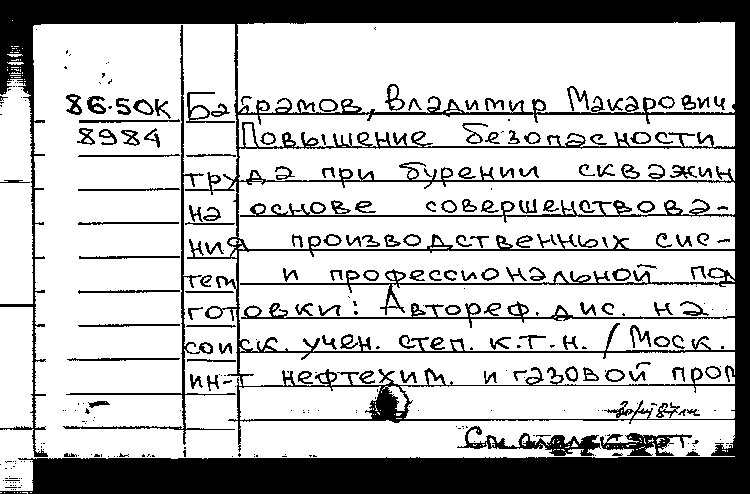 86-50К Байрамов, Владимир Макарович.
8984 Повышение безопасности
труда при бурении скважин
на основе совершенствова-
ния производственных сис-
тем и профессиональной под
готовки: Автореф. дис. на
соиск. учен. степ. к.т.н. / Моск.
ин-т нефтехим. и газовой пром
См. след. карт.